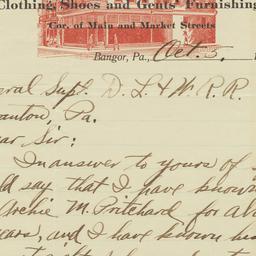 Clothing, Shoes and Gents' Furnishing
Cor. of Main and Market Streets
Bangor, Pa., Oct. 5,
eral Supt. D. L. & W. R. R.
anton, Pa.
ar Sir:
In answer to yours of
ld say that I have known
Archie M. Pritchard for abo
ears, and I have known hi